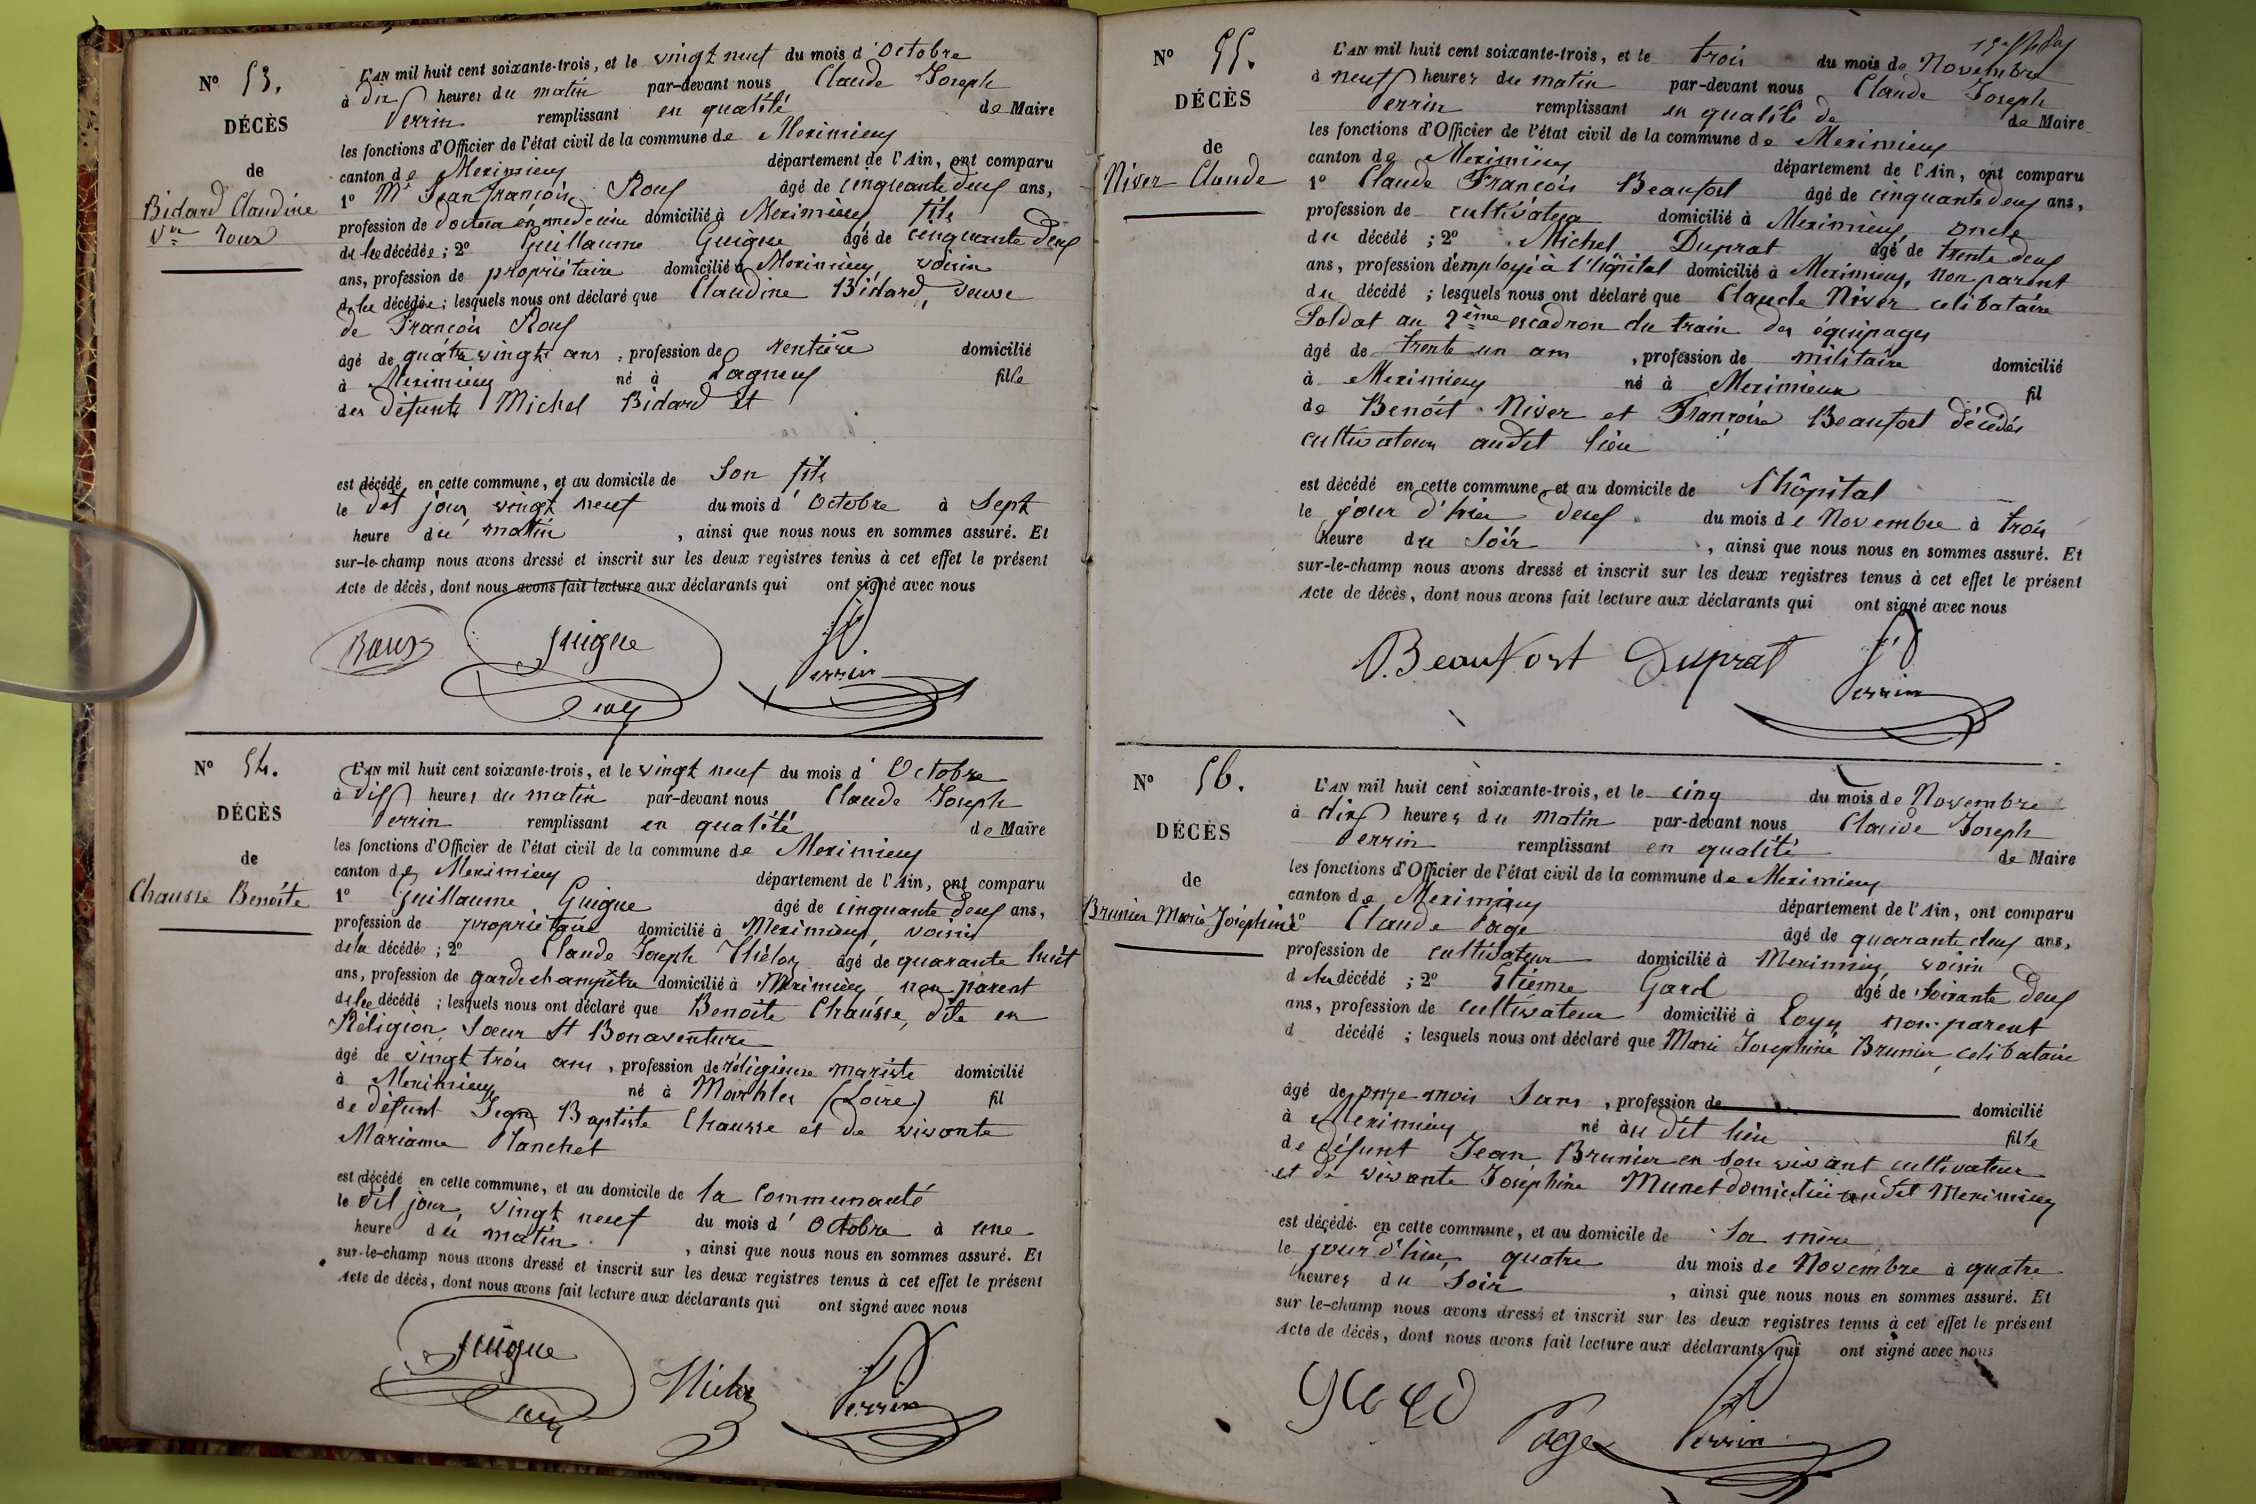 N° 53.
DÉCÈS
de
Bidard Claudine
Vve Roux
L'AN mil huit cent soixante-trois, et le vingt neuf du mois d'Octobre
à dix heures du matin par-devant nous Claude Joseph
Perrin remplissant en qualité de Maire
les fonctions d'Officier de l'état civil de la commune de Meximieux
canton de Meximieux département de l'Ain, ont comparu
1° Mr Jean François Roux âgé de cinquante deux ans,
profession de docteur en medecine domicilié à Meximieux, fils
de la décédée; 2° Guillaume Guigue âgé de cinquante deux
ans, profession de propriétaire domicilié à Meximieux, voisin
de la décédée; lesquels nous ont déclaré que Claudine Bidard, veuve
de François Roux
âgé de quatre vingt ans, profession de rentière domicilié
à Meximieux né à Lagneux fille
des défunts Michel Bidard et
est décédé en cette commune, et au domicile de Son fils
le dit jour vingt neuf du mois d'Octobre à Sept
heure du matin, ainsi que nous nous en sommes assuré. Et
sur-le-champ nous avons dressé et inscrit sur les deux registres tenus à cet effet le présent
Acte de décès, dont nous avons fait lecture aux déclarants qui ont signé avec nous
Roux Guigue Perrin
N° 54.
DÉCÈS
de
Chausse Benoite
L'AN mil huit cent soixante-trois, et le vingt neuf du mois d'Octobre
à dix heures du matin par-devant nous Claude Joseph
Perrin remplissant en qualité de Maire
les fonctions d'Officier de l'état civil de la commune de Meximieux
canton de Meximieux département de l'Ain, ont comparu
1° Guillaume Guigue âgé de cinquante deux ans,
profession de propriétaire domicilié à Meximieux, voisin
de la décédée; 2° Claude Joseph âgé de quarante huit
ans, profession de garde champêtre domicilié à Meximieux non parent
de la décédé; lesquels nous ont déclaré que Benoite Chausse, dite en
Réligion, Sœur St Bonaventure
âgé de vingt trois ans, profession de réligieuse mariste domicilié
à Meximieux né à (Loire) fil
de défunt Jean Baptiste Chausse et de vivante
Marianne Planchet
est décédé en cette commune, et au domicile de la Communauté
le dit jour, vingt neuf du mois d'Octobre à une
heure du matin, ainsi que nous nous en sommes assuré. Et
sur-le-champ nous avons dressé et inscrit sur les deux registres tenus à cet effet le présent
Acte de décès, dont nous avons fait lecture aux déclarants qui ont signé avec nous
Guigue Perrin
N° 55.
DÉCÈS
de
Niver Claude
L'AN mil huit cent soixante-trois, et le trois du mois de Novembre
à neuf heures du matin par-devant nous Claude Joseph
Perrin remplissant en qualité de de Maire
les fonctions d'Officier de l'état civil de la commune de Meximieux
canton de Meximieux département de l'Ain, ont comparu
1° Claude François Beaufort âgé de cinquante deux ans,
profession de cultivateur domicilié à Meximieux, oncle
du décédé; 2° Michel Duprat âgé de trente deux
ans, profession d'employé à l'hôpital domicilié à Meximieux, non parent
du décédé; lesquels nous ont déclaré que Claude Niver celibataire
Soldat au 2ème escadron du train des équipages
âgé de trente un ans, profession de militaire domicilié
à Meximieux né à Meximieux fil
de Benoit Niver et Françoise Beaufort décédés
cultivateurs audit lieu
est décédé en cette commune, et au domicile de l'hôpital
le jour d'hier deux du mois de Novembre à trois
heure du Soir, ainsi que nous nous en sommes assuré. Et
sur-le-champ nous avons dressé et inscrit sur les deux registres tenus à cet effet le présent
Acte de décès, dont nous avons fait lecture aux déclarants qui ont signé avec nous
Beaufort Duprat Perrin
N° 56.
DÉCÈS
de
Brunier Marie Joséphine
L'AN mil huit cent soixante-trois, et le cinq du mois de Novembre
à dix heures du matin par-devant nous Claude Joseph
Perrin remplissant en qualité de Maire
les fonctions d'Officier de l'état civil de la commune de Meximieux
canton de Meximieux département de l'Ain, ont comparu
1° Claude Page âgé de quarante deux ans,
profession de cultivateur domicilié à Meximieux, voisin
de la décédé; 2° Etienne Gard âgé de soixante deux
ans, profession de cultivateur domicilié à Loyes non parent
d décédé; lesquels nous ont déclaré que Marie Josephine Brunier, celibataire
âgé de onze mois Sans, profession de domicilié
à Meximieux né au dit lieu fille
de défunt Jean Brunier en son vivant cultivateur
et de vivante Joséphine Munet domiciliée audit Meximieux
est décédé en cette commune, et au domicile de Sa mère
le jour d'hier, quatre du mois de Novembre à quatre
heures du Soir, ainsi que nous nous en sommes assuré. Et
sur le-champ nous avons dressé et inscrit sur les deux registres tenus à cet effet le présent
Acte de décès, dont nous avons fait lecture aux déclarants qui ont signé avec nous
Gard Page Perrin